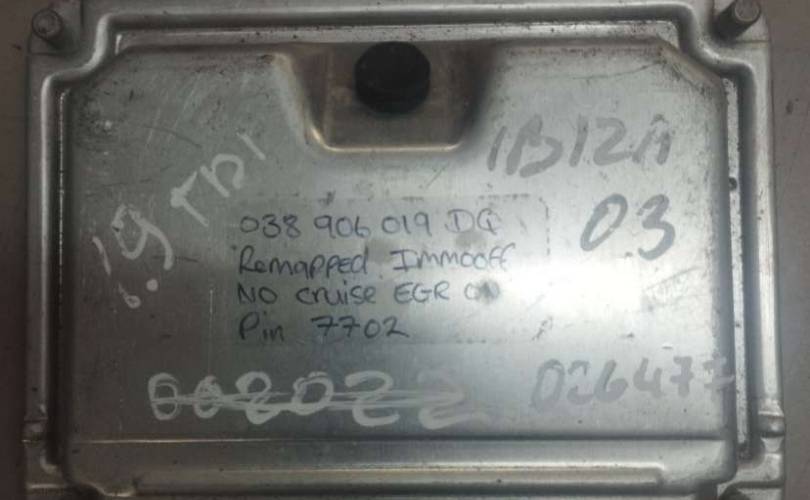 IBIZA
03
1.9 TDI
038 906 019 DQ
Remapped Immooff
NO cruise EGR ON
Pin 7702
008022
026477